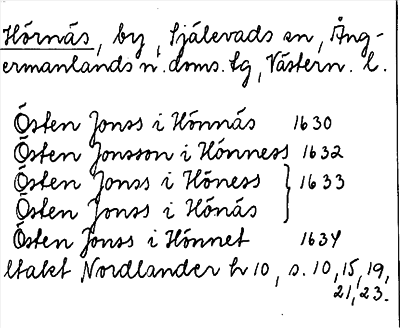 Hörnäs, by, Själevads sn, Ång-
ermanlands n. doms. tg, Västern. l.
Östen Jonss i Hönnäs 1630
Östen Jonsson i Hönness 1632
Östen Jonss i Höness } 1633
Östen Jonss i Hönäs
Östen Jonss i Hönnet 1634
ltakt Nordlander h 10, s. 10, 15, 19,
21, 23.